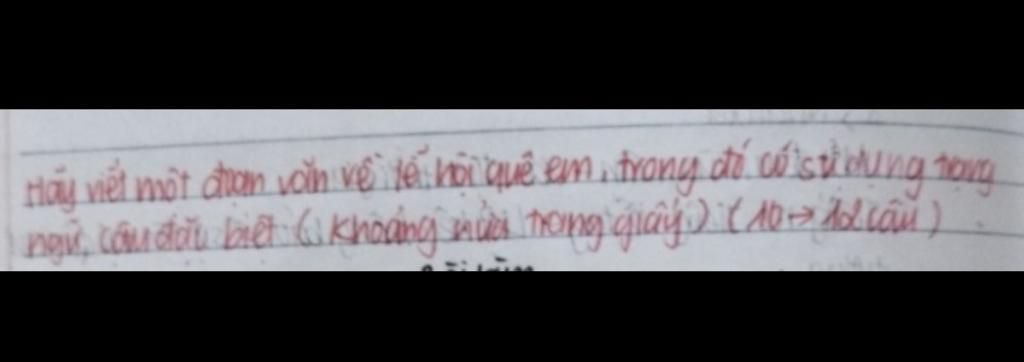 Hãy viết một đoạn văn về lễ hội quê em, trong đó có sử dụng trạng
ngữ, câu đặc biệt ( khoảng nửa trang giấy ) ( 10 → 12 câu )